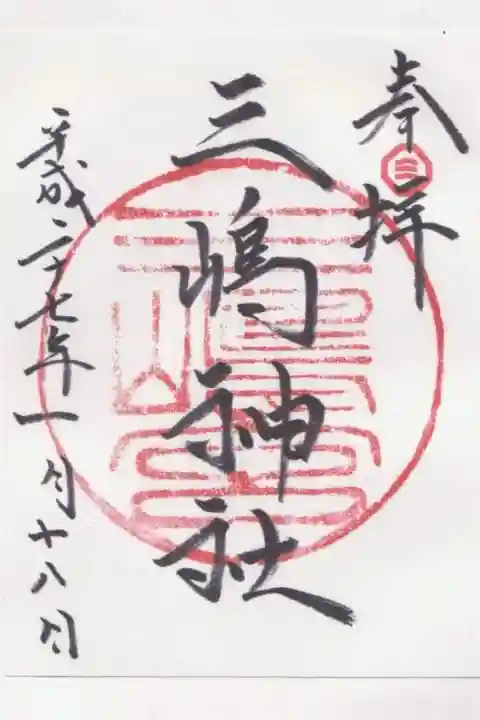 奉拝
三嶋神社
平成二十七年一月十八日